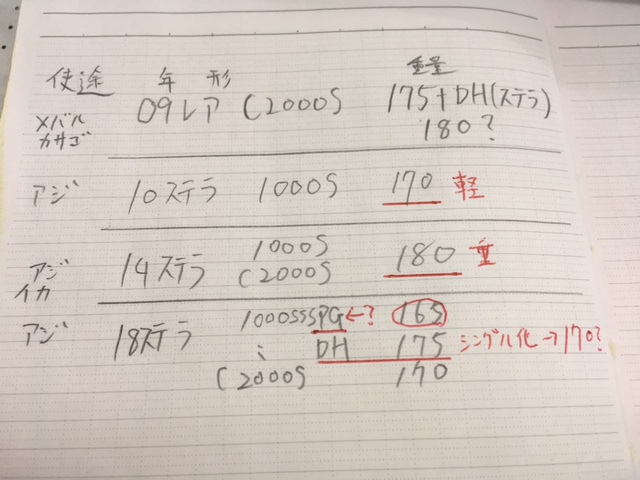 使途 年 形 重量
メバル カサゴ 09レア C2000S 175+DH(ステラ)
180?
アジ 10ステラ 1000S 170 軽
アジ イカ 14ステラ 1000S 180 重
C2000S
アジ 18ステラ 1000SSSPG←? 165
〃 DH 175 シングル化→170?
C2000S 170